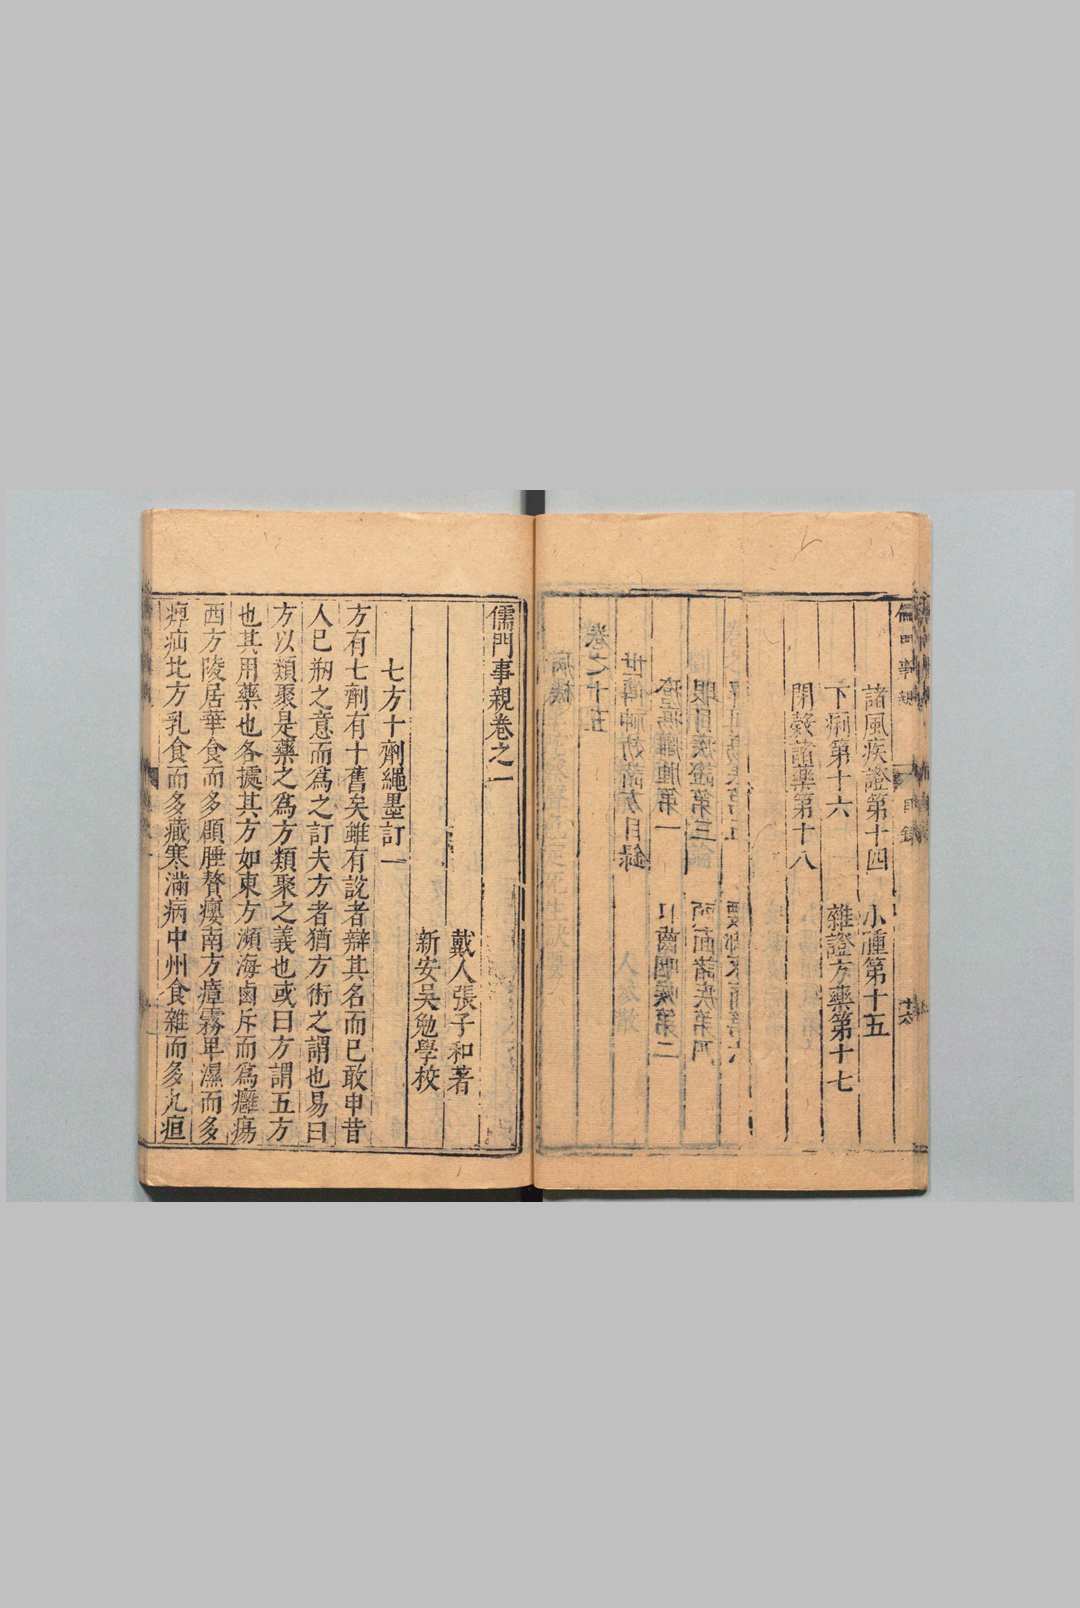 諸風疾證第十四 小兒腫第十五
下痢第十六 雜證方藥第十七
閉諸藥第十八
儒門事親卷之一
戴人張子和著
新安吳勉學校
七方十劑繩墨訂一
方有七劑有十舊矣雖有說者辯其名而已敢申昔
人已剏之意而為之訂夫方者猶方術之謂也易曰
方以類聚是藥之為方類聚之義也或曰方謂五方
也其用藥也各據其方如東方瀕海鹵斥而為癰瘍
西方陵居華食而多頤腄贅癭南方瘴霧卑濕而多
痹疝北方乳食而多藏寒滿病中州食雜而多九疸